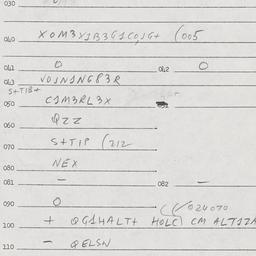 030
040 XOM3XJB3G1C0JG+ (005
041 0 042 0
043 VOJNJNG83R
S+TIP+
050 C1M3RL3X
060 QZZ
070 S+TIP (212
080 NEX
081 — 082 —
090 0
100 + QG14ALT+ HOLC) CM ALTJZA
110 - QELSN